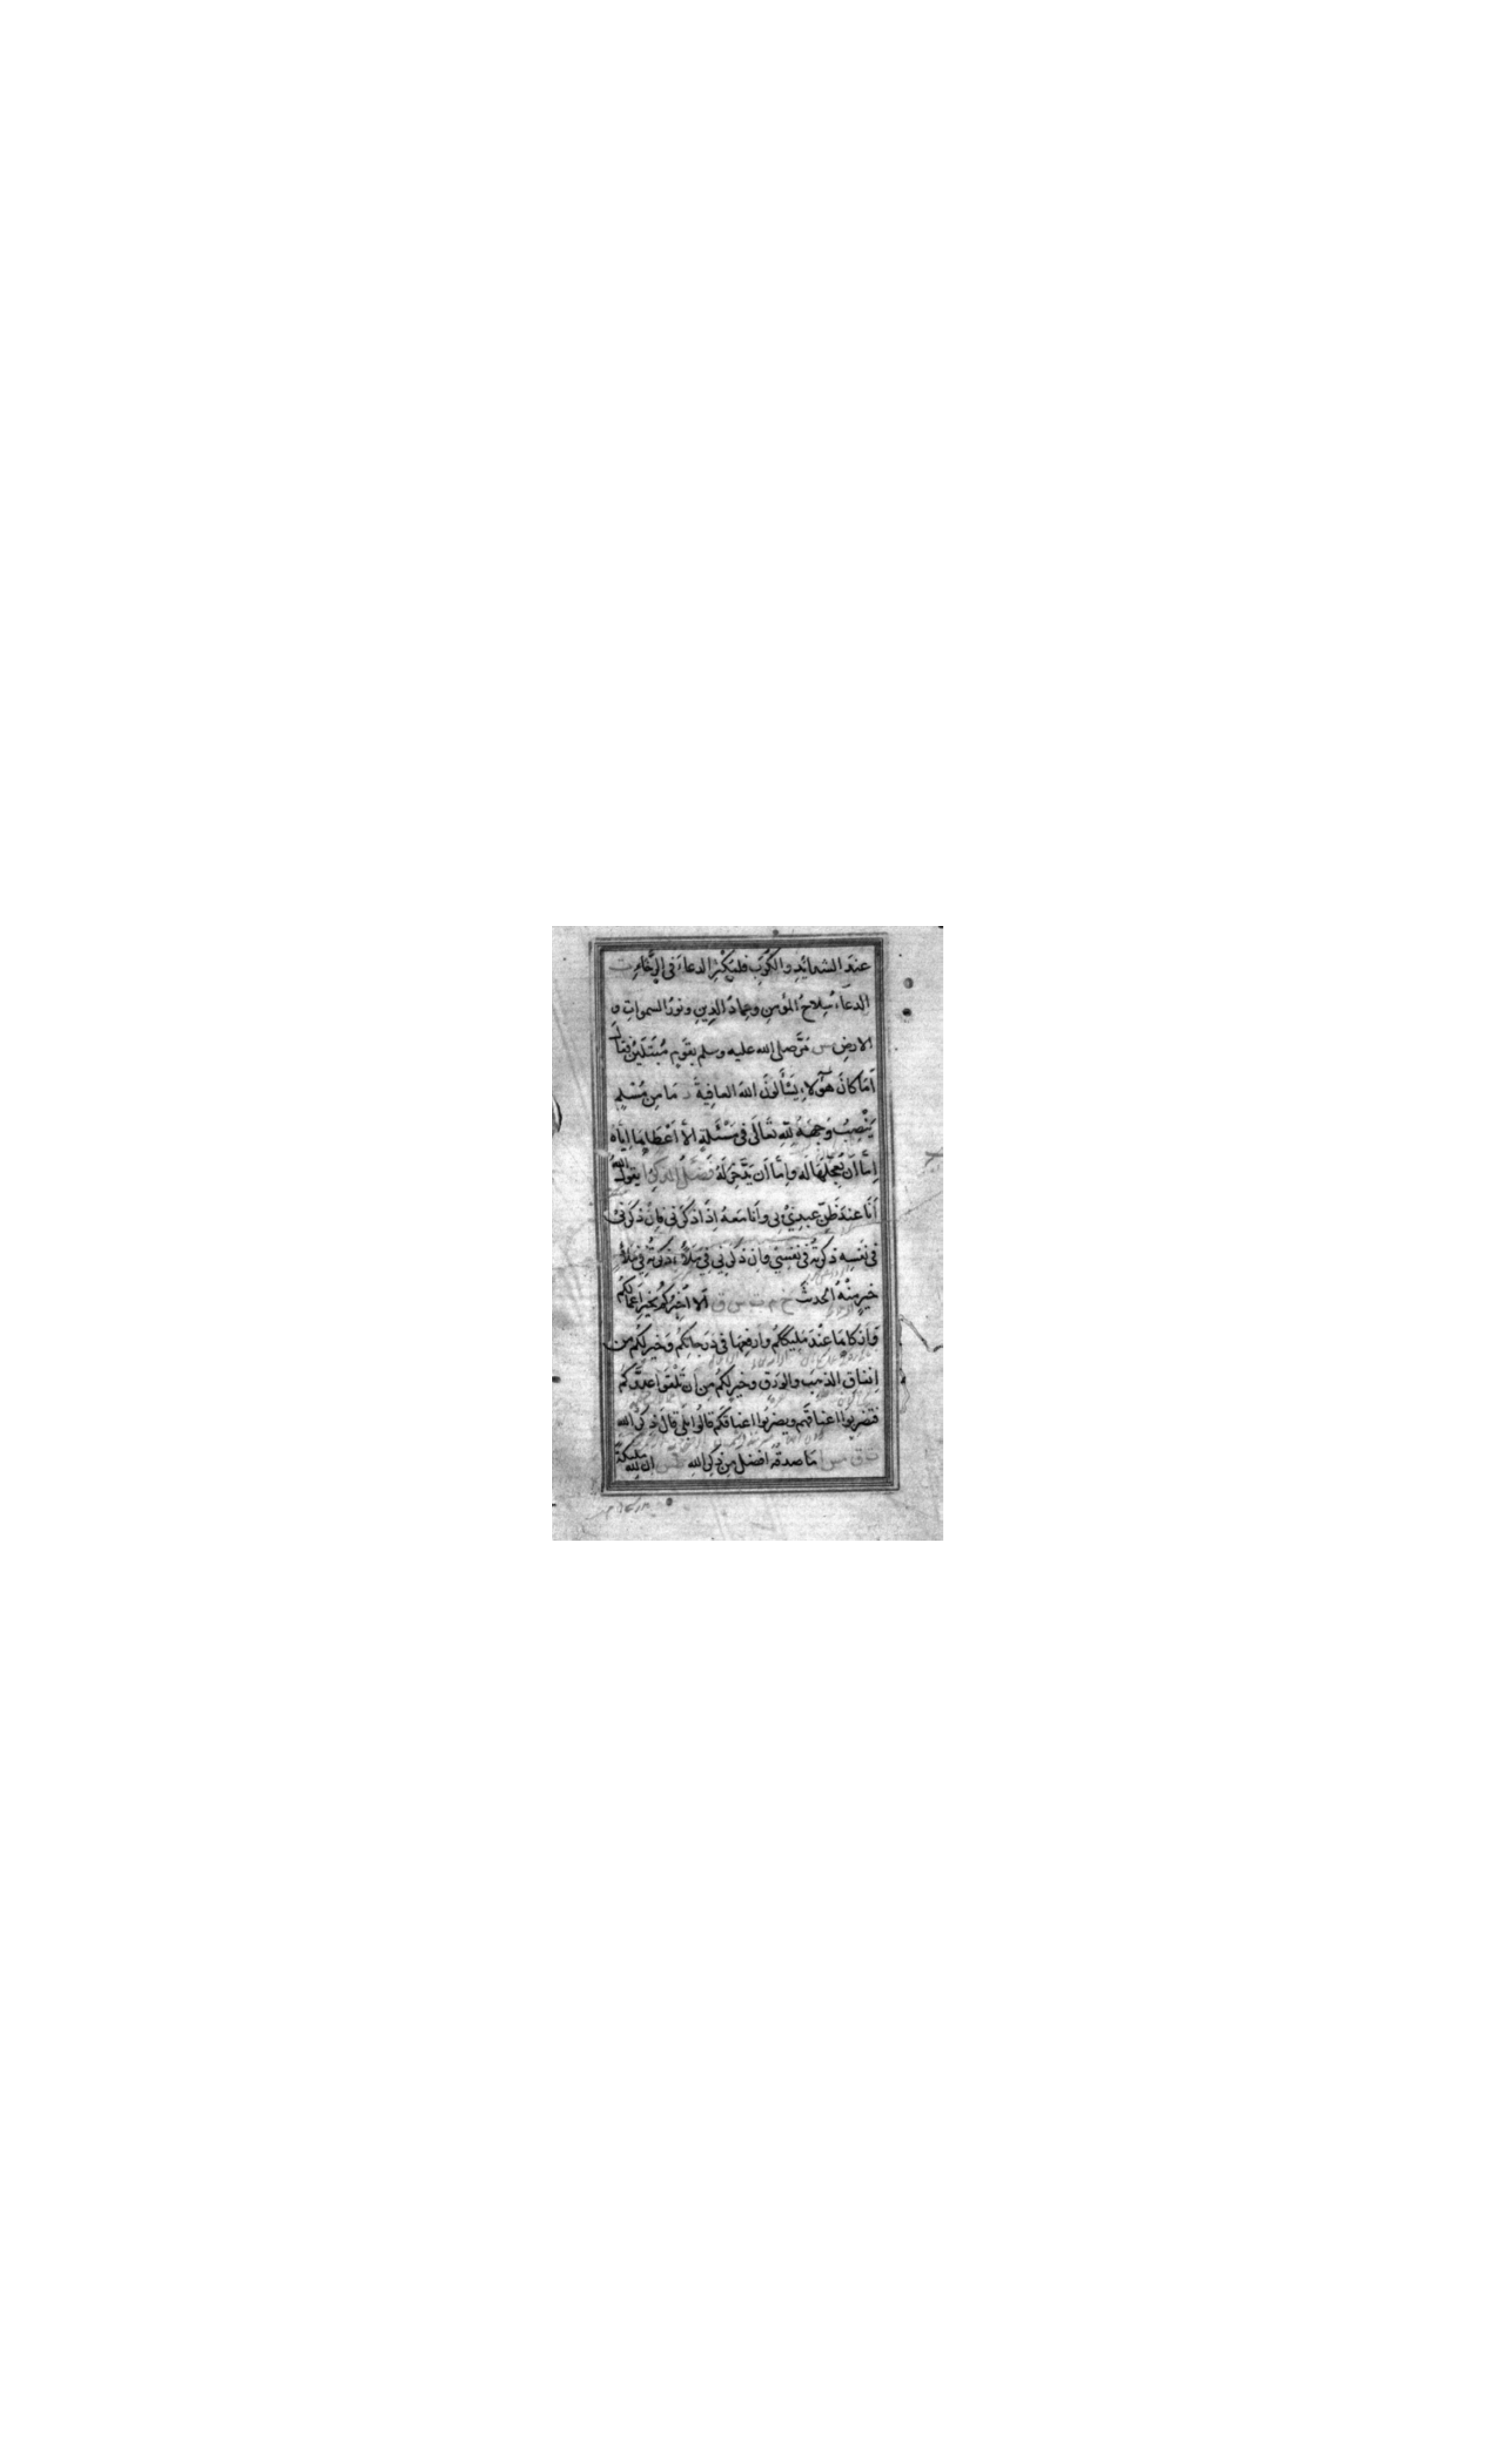 عِندَ الشدائِدِ والكُرَبِ فليُكثِرِ الدعاءَ فى الرَّخاءِ ت
الدعاءُ سِلاحُ المؤمنِ وعِمادُ الدِينِ ونورُ السمواتِ و
الارضِ س مَرَّ صلى الله عليه وسلم بقَومٍ مُبتَلَيْنَ فقال
اَمَا كانَ هٰؤلاءِ يَسْأَلونَ اللهَ العافِيةَ ر مَا مِن مُسْلمٍ
يَنْصِبُ وَجهَهُ للهِ تَعالَى فى مَسْئَلةٍ الاَّ اَعْطَاهَا اِيَّاه
اِمَّا اَن يُعجِّلَهَا لَه وامَّا اَن يَدَّخِرَ لَهُ فَضْلُ الذكرِ يقولُ اللهُ
اَنَا عِندَ ظَنِّ عبدِيْ بِى وَانا مَعهُ اِذَا ذكَرَنى فاِنْ ذكَرَنىْ
فى نَفسِهِ ذكرتُهُ فى نَفسِيْ واِن ذكَرَنِي فِي مَلَأٍ ذكرتُهُ فِي مَلَأٍ
خيرٍ مِنْهُ الحديث خ م ت س ق اَلا اُخبِرُكُم بخَيرِ اَعمالِكُم
وَاَزْكاهَا عِنْدَ مَلِيكِكُم وارفعِهَا فى دَرَجاتِكُم وَخَيرٍ لكُم مِن
اِنفاقِ الذهَبِ والوَرِقِ وخَيرٍ لكُم مِن اَن تَلْقَوا عَدُوَّكُم
فتضرِبُوا اعناقَهُم ويضرِبُوا اعناقَكُم قالُوا بَلَى قالَ ذِكرُ الله
ت ق مس ا مَا صدقةٌ افضلَ مِن ذِكرِ اللهِ طس ان لله مليكةً